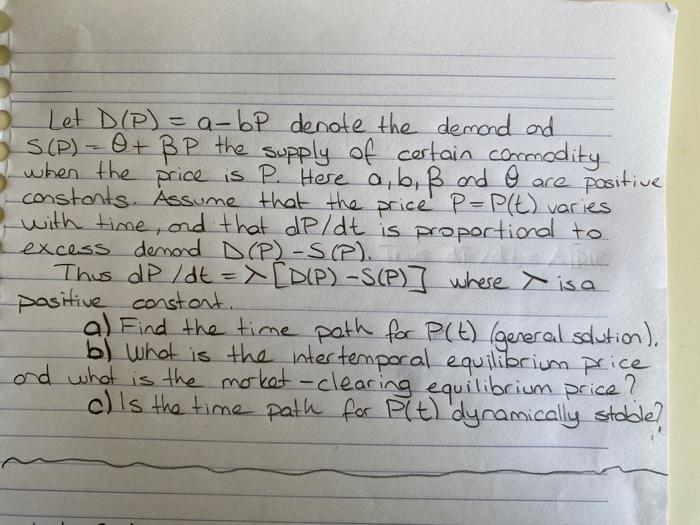 Let D(P) = a-bP denote the demand and
S(P) = θ + βP the supply of certain commodity
when the price is P. Here a, b, β and θ are positive
constants. Assume that the price P = P(t) varies
with time, and that dP/dt is proportional to
excess demand D(P) - S(P).
Thus dP/dt = λ [D(P) - S(P)] where λ is a
positive constant.
a) Find the time path for P(t) (general solution).
b) What is the intertemporal equilibrium price
and what is the market-clearing equilibrium price?
c) Is the time path for P(t) dynamically stable?